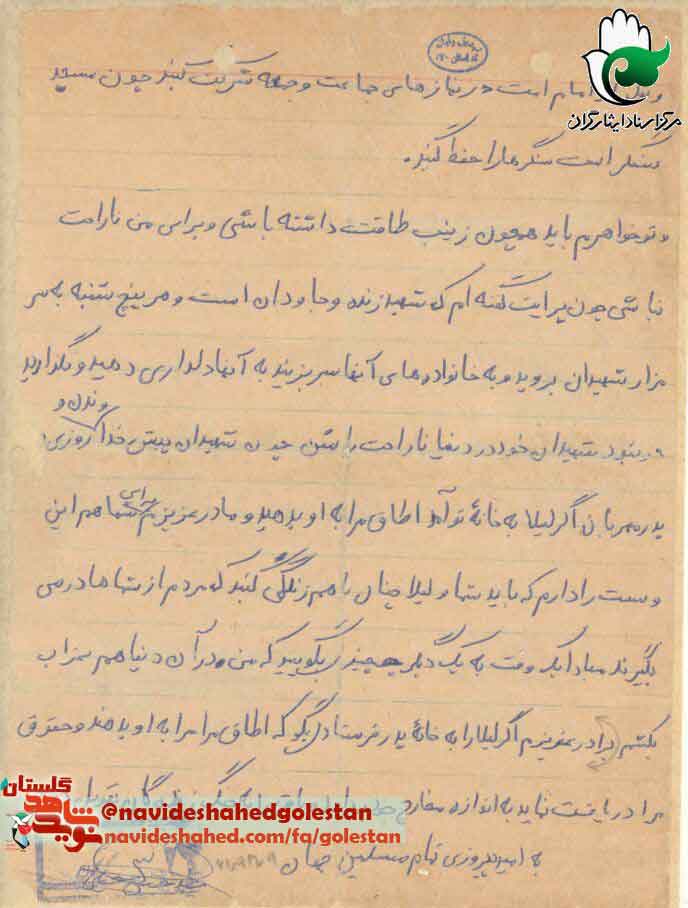 مرکز اسناد ایثارگران
امام است در نمازهای جماعت و جمعه شرکت کنید چون مسجد
سنگر است سنگرها را حفظ کنید.
و تو خواهرم باید همچون زینب طاقت داشته باشی و برای من ناراحت
نباشی چون برایت گفته ام که شهید زنده و جاودان است و هر پنج شنبه به سر
مزار شهیدان بروید و به خانواده های آنها سر بزنید به آنها دلداری دهید و نگذارید
شهیدان خود در دنیا ناراحت باشن چون شهیدان پیش خدا روزی
پدر مهربان اگر لیلا به خانۀ تو آمد اطاق مرا به او بدهید و مادر عزیزم برای شما هم این
وصیت را دارم که باید شما و لیلا چنان با هم زندگی کنید که مردم از شماها درس
بگیرند مبادا یک وقت به یک دیگر چیزی بگویید که من در آن دنیا هم عذاب
بکشم برادر عزیزم اگر لیلا را به خانۀ پدر فرستاد بگو که اطاق مرا به او بدهند و حقوق
مرا دریافت نماید به اندازه مخارج خود
به امید پیروزی تمام مسلمین جهان
نوید شاهد
گلستان
@navideshahedgolestan
navideshahed.com/fa/golestan